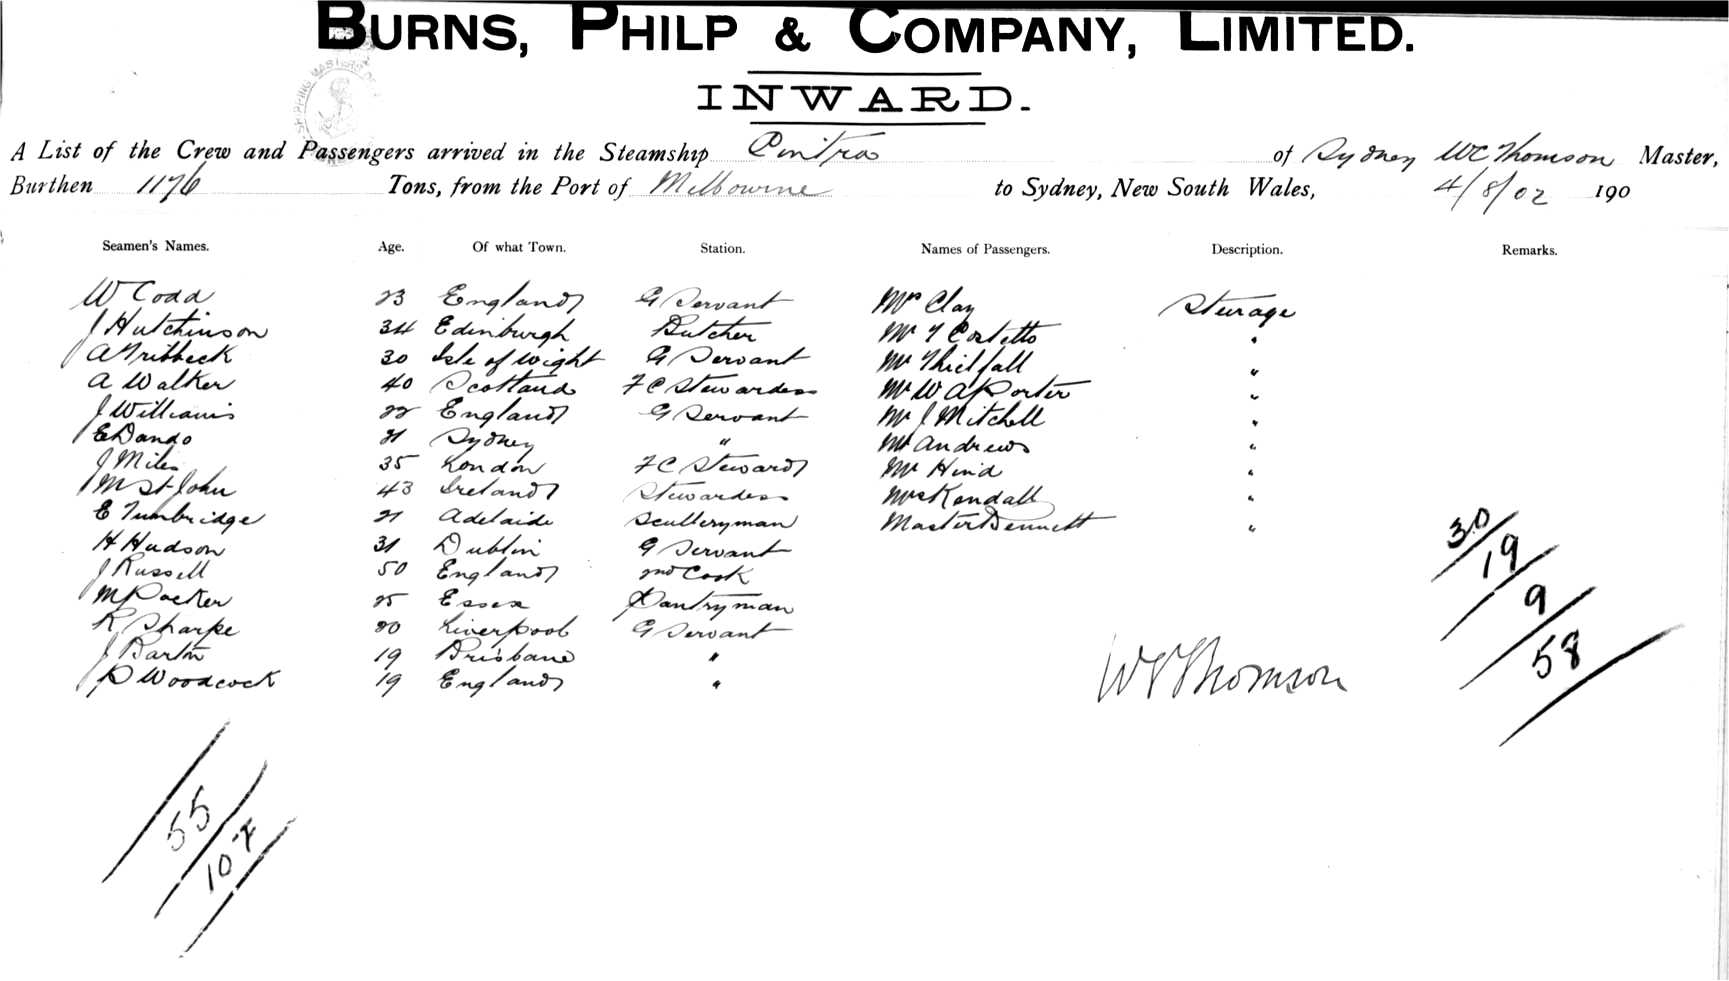 BURNS, PHILP & COMPANY, LIMITED.
INWARD.
A List of the Crew and Passengers arrived in the Steamship Cintra of Sydney WC Thomson Master,
Burthen 1176 Tons, from the Port of Melbourne to Sydney, New South Wales, 4/8/02 190
Seamen's Names. Age. Of what Town. Station. Names of Passengers. Description. Remarks.
W Codd 23 England G Servant Mrs Clay Sturage
J Hutchinson 34 Edinburgh Butcher Mr T Costello "
A Tribbeck 30 Isle of Wight G Servant Mr "
A Walker 40 Scotland F C Stewardess Mr W A Porter "
J Williams 22 England G Servant Mr J Mitchell "
E Dando 21 Sydney " Mr Andrews "
J Miles 35 London F C Steward Mr Hind "
M St John 43 Ireland Stewardess Mrs Kendall "
E Tumbridge 21 Adelaide Sculleryman Master Dennett "
H Hudson 31 Dublin G Servant
J Russell 50 England 2nd Cook
M Packer 25 Essex Pantryman
R Sharpe 20 Liverpool G Servant
J Barton 19 Brisbane "
P Woodcock 19 England "
30
19
9
58
WC Thomson
55
107